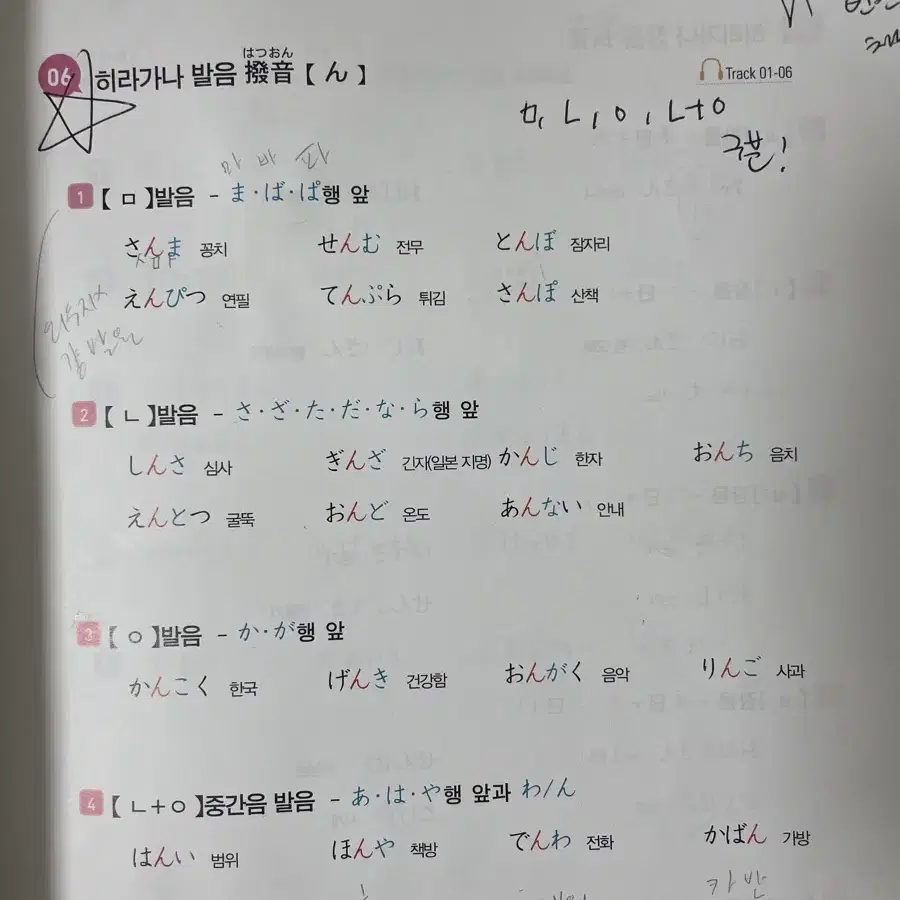 はつおん
06 히라가나 발음 撥音【ん】
Track 01-06
ㅁ, ㄴ, ㅇ, ㄴ+ㅇ
구분!
마 바 파
1 【ㅁ】발음 - ま·ば·ぱ행 앞
さんま 꽁치 せんむ 전무 とんぼ 잠자리
えんぴつ 연필 てんぷら 튀김 さんぽ 산책
2 【ㄴ】발음 - さ·ざ·た·だ·な·ら행 앞
しんさ 심사 ぎんざ 긴자(일본 지명) かんじ 한자 おんち 음치
えんとつ 굴뚝 おんど 온도 あんない 안내
3 【ㅇ】발음 - か·が행 앞
かんこく 한국 げんき 건강함 おんがく 음악 りんご 사과
4 【ㄴ+ㅇ】중간음 발음 - あ·は·や행 앞과 わ/ん
はんい 범위 ほんや 책방 でんわ 전화 かばん 가방
카반